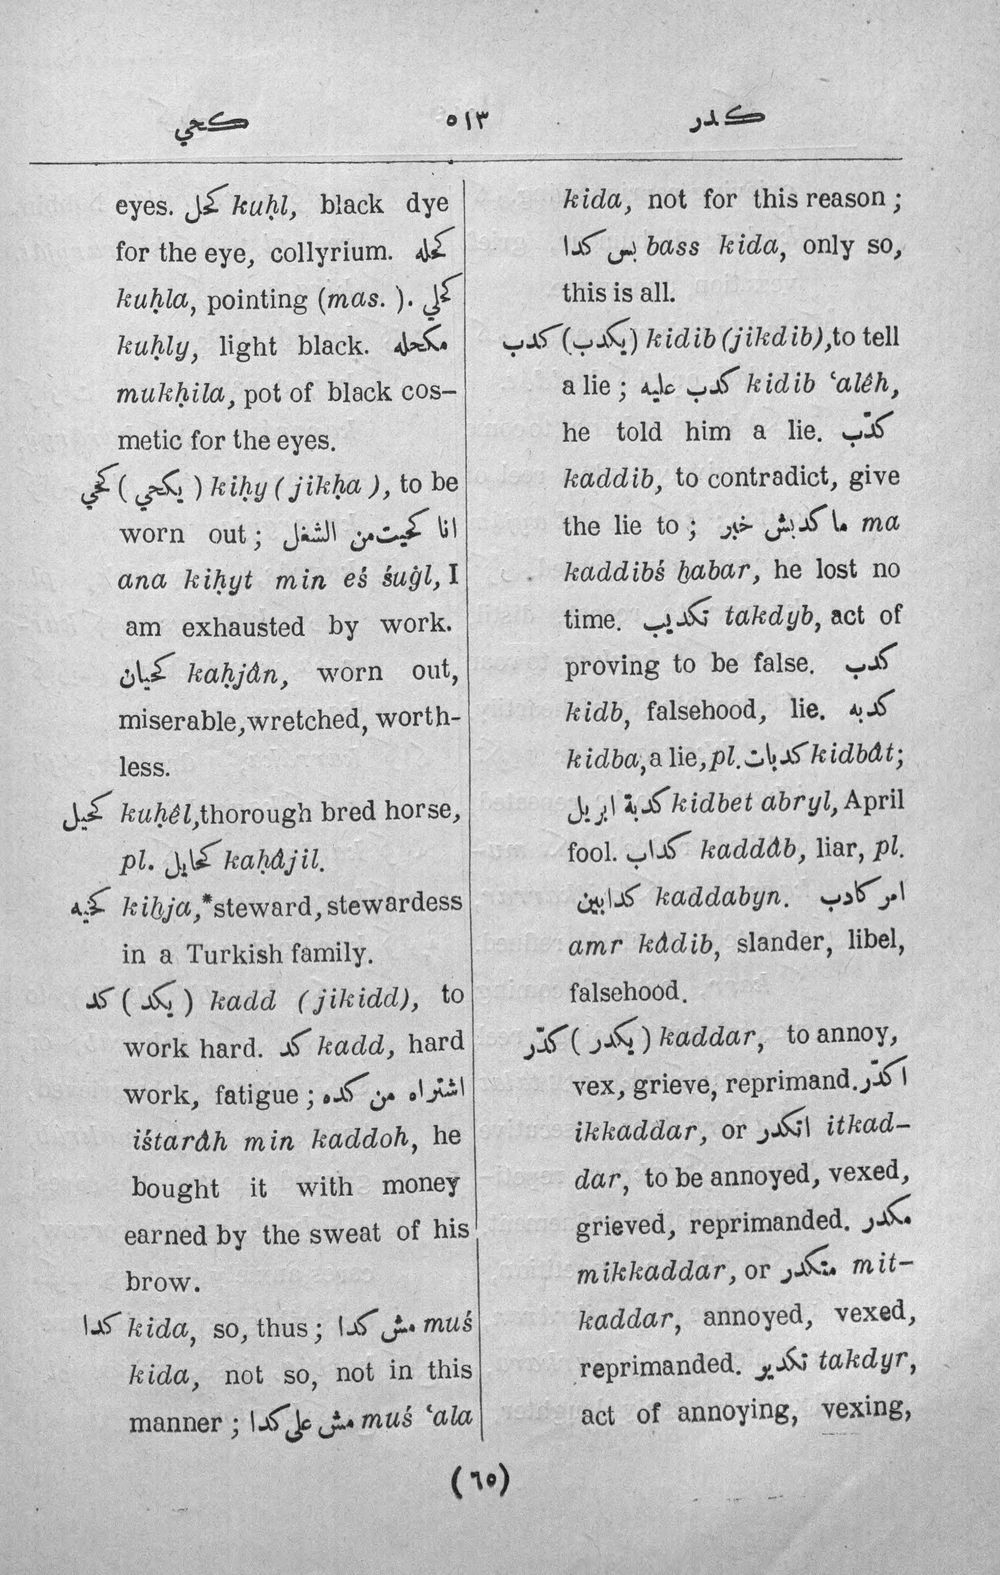 كحي ٥١٣ كدر
eyes. كحل kuḥl, black dye
for the eye, collyrium. كحله
kuḥla, pointing (mas. ). كحلي
kuḥly, light black. مكحله
mukḥila, pot of black cos-
metic for the eyes.
كحي ( يكحي ) kiḥy ( jikḥa ), to be
worn out ; انا كحيت من الشغل
ana kiḥyt min eś śuġl, I
am exhausted by work.
كحيان kaḥjân, worn out,
miserable, wretched, worth-
less.
كحيل kuḥêl, thorough bred horse,
pl. كحايل kaḥâjil.
كخيه kiḫja,*steward, stewardess
in a Turkish family.
كد ( يكد ) kadd ( jikidd), to
work hard. كد kadd, hard
work, fatigue ; اشتراه من كده
iśtarâh min kaddoh, he
bought it with money
earned by the sweat of his
brow.
كدا kida, so, thus ; مش كدا muś
kida, not so, not in this
manner ; مش على كدا muś ‘ala
kida, not for this reason ;
بس كدا bass kida, only so,
this is all.
كدب (يكدب) kidib (jikdib), to tell
a lie ; كدب عليه kidib ‘alêh,
he told him a lie. كدّب
kaddib, to contradict, give
the lie to ; ما كدبش خبر ma
kaddibś ḫabar, he lost no
time. تكديب takdyb, act of
proving to be false. كدب
kidb, falsehood, lie. كدبه
kidba, a lie, pl. كدبات kidbât;
كدبة ابريل kidbet abryl, April
fool. كداب kaddâb, liar, pl.
كدابين kaddabyn. امر كادب
amr kâdib, slander, libel,
falsehood.
كدّر ( يكدر ) kaddar, to annoy,
vex, grieve, reprimand. اكدّر
ikkaddar, or اتكدر itkad-
dar, to be annoyed, vexed,
grieved, reprimanded. مكدر
mikkaddar, or متكدر mit-
kaddar, annoyed, vexed,
reprimanded. تكدير takdyr,
act of annoying, vexing,
(٦٥)